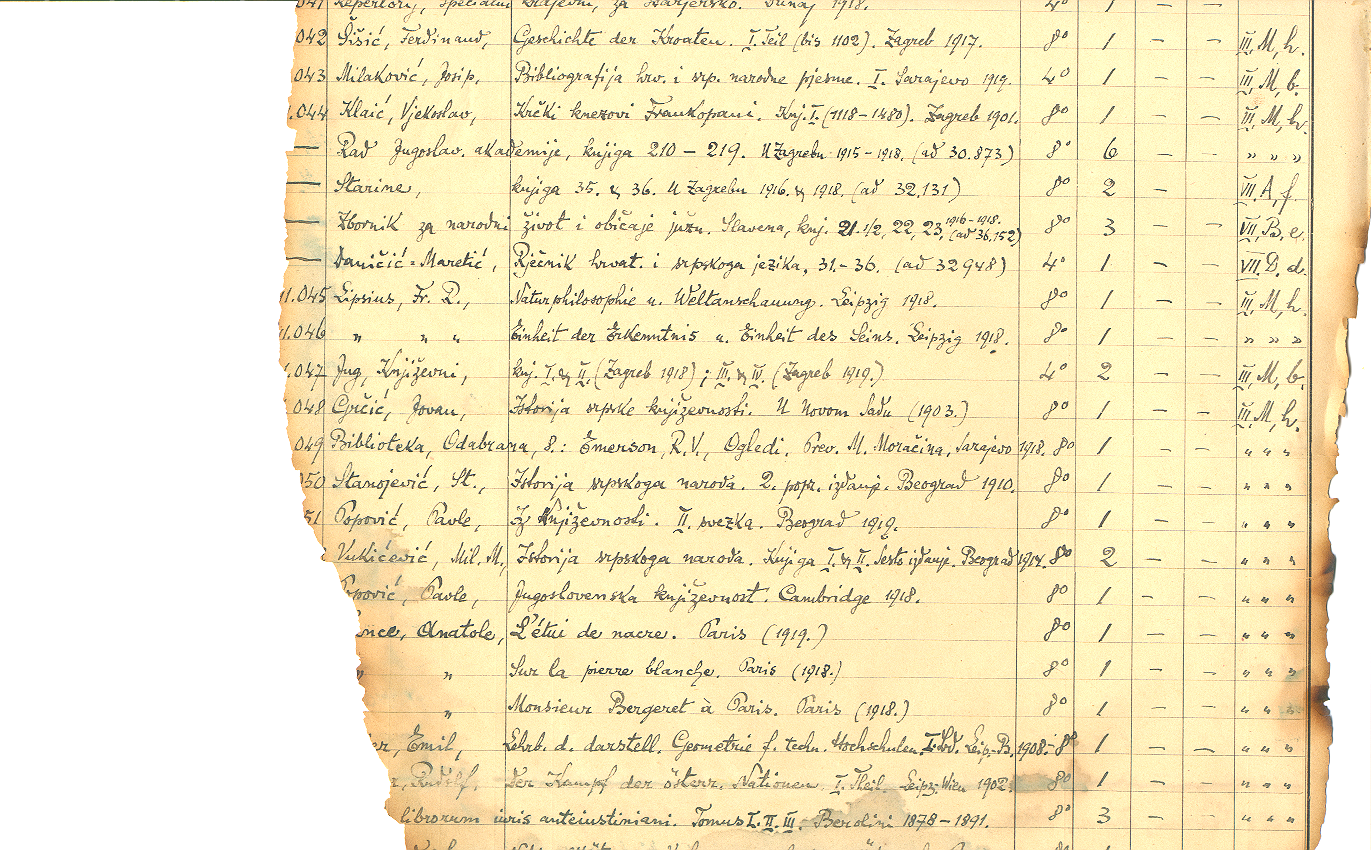 041 Repertorij, specialni krajevni, za Štajersko. Dunaj 1918. 4° 1 – –
042 Šišić, Ferdinand, Geschichte der Kroaten. I. Teil (bis 1102). Zagreb 1917. 8° 1 – – III, M, h.
043 Milaković, Josip, Bibliografija hrv. i srp. narodne pjesme. I. Sarajevo 1919. 4° 1 – – III, M, b.
.044 Klaić, Vjekoslav, Krčki knezovi Frankopani. Knj. I. (1118–1480). Zagreb 1901. 8° 1 – – III, M, h.
— Rad Jugoslav. akademije, knjiga 210 – 219. U Zagrebu 1915 – 1918. (ad 30.873) 8° 6 – – „ „ „
— Starine, knjiga 35. & 36. U Zagrebu 1916. & 1918. (ad 32.131) 8° 2 – VII. A, f.
— Zbornik za narodni život i običaje južn. Slavena, knj. 21. 1/2, 22, 23, 1916–1918. (ad 36,152) 8° 3 – – VII, B, e.
— Daničić-Maretić, Rječnik hrvat. i srpskoga jezika, 31.– 36. (ad 32948) 4° 1 – – VII. D. d.
11.045 Lipsius, Fr. R., Naturphilosophie u. Weltanschauung. Leipzig 1918. 8° 1 – – III, M, h.
1.046 „ „ „ Einheit der Erkenntnis u. Einheit des Seins. Leipzig 1918. 8° 1 – – „ „ „
.047 Jug, Književni, knj. I. & II. (Zagreb 1918) ; III. & IV. (Zagreb 1919.) 4° 2 – – III, M, b.
048 Grčić, Jovan, Istorija srpske književnosti. U Novom Sadu (1903.) 8° 1 – – III, M, h.
049 Biblioteka, Odabrana, 8.: Emerson, R.V., Ogledi. Prev. M. Moračina, Sarajevo 1918. 8° 1 – – „ „ „
050 Stanojević, St., Istorija srpskoga naroda. 2. popr. izdanje. Beograd 1910. 8° 1 – – „ „ „
51 Popović, Pavle, Iz književnosti. II. svezka. Beograd 1919. 8° 1 – – „ „ „
Vukićević, Mil. M., Istorija srpskoga naroda. Knjiga I. & II. Šesto izdanje. Beograd 1914. 8° 2 – – „ „ „
opović, Pavle, Jugoslovenska književnost. Cambridge 1918. 8° 1 – – „ „ „
ance, Anatole, L'étui de nacre. Paris (1919.) 8° 1 – – „ „ „
„ „ Sur la pierre blanche. Paris (1918.) 8° 1 – – „ „ „
„ Monsieur Bergeret à Paris. Paris (1918.) 8° 1 – – „ „ „
er, Emil, Lehrb. d. darstell. Geometrie f. techn. Hochschulen. I. Bd. Leip.-B. 1908.– 8° 1 – – „ „ „
r, Rudolf, Der Kampf der österr. Nationen. I. Theil. Leipz. Wien 1902. 8° 1 – – „ „ „
librorum iuris anteiustiniani. Tomus I. II. III. Berolini 1878 – 1891. 8° 3 – – „ „ „